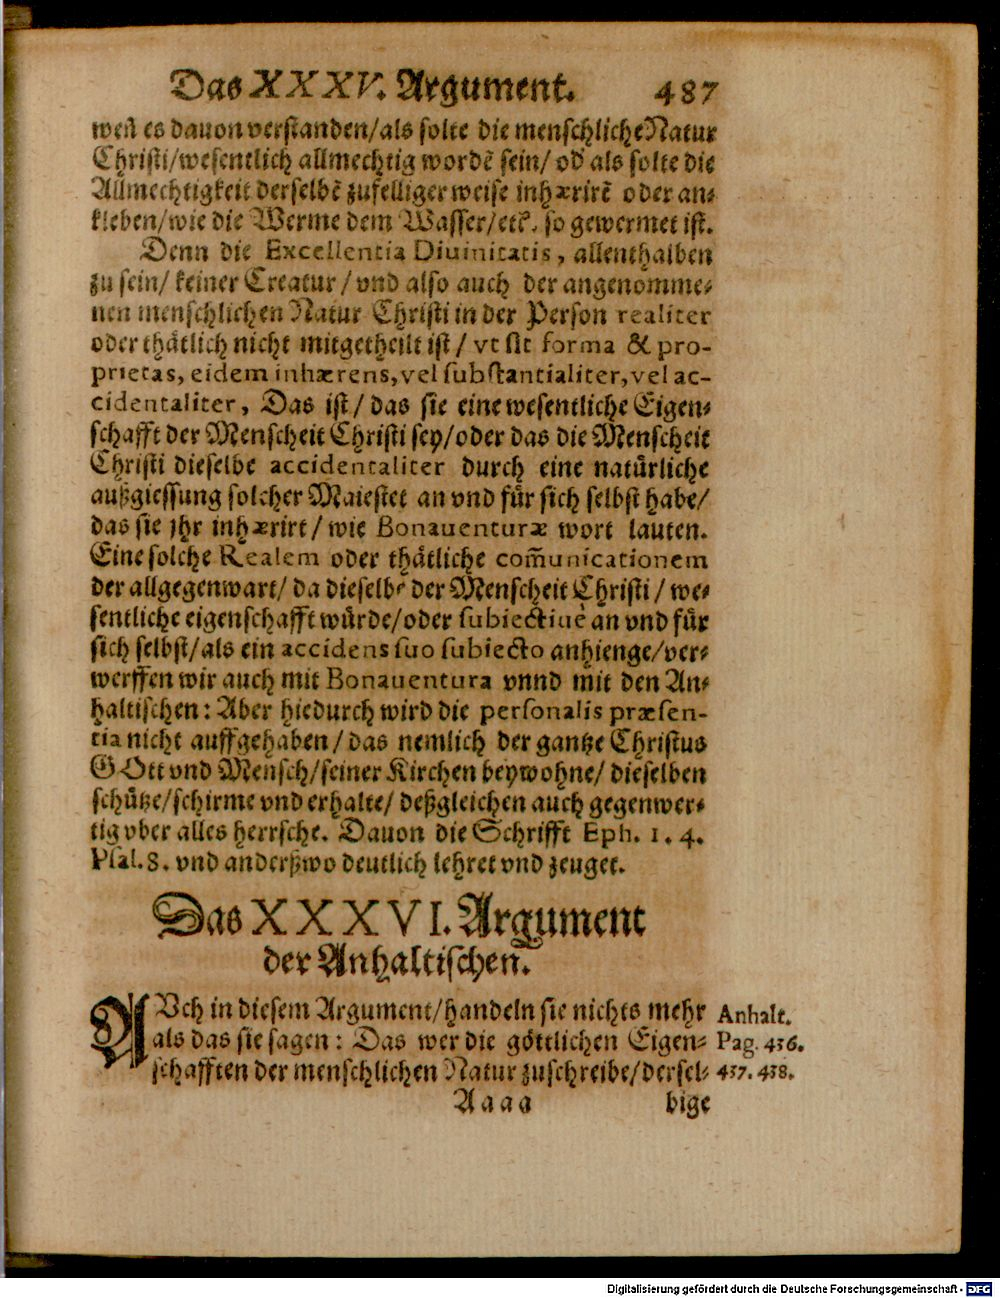 Das XXXV. Argument. 487
weil es dauon verstanden/als solte die menschliche Natur
Christi/wesentlich allmechtig wordẽ sein/ od' als solte die
Allmechtigkeit derselbẽ zufelliger weise inhærirẽ oder an-
kleben/wie die Werme dem Wasser/etc. so gewermet ist.
Denn die Excellentia Diuinitatis, allenthalben
zu sein/ keiner Creatur / vnd also auch der angenomme-
nen menschlichen Natur Christi in der Person realiter
oder thätlich nicht mitgetheilt ist / vt sit forma & pro-
prietas, eidem inhærens, vel substantialiter, vel ac-
cidentaliter, Das ist / das sie eine wesentliche Eigen-
schafft der Menscheit Christi sey/oder das die Menscheit
Christi dieselbe accidentaliter durch eine natürliche
außgiessung solcher Maiestet an vnd für sich selbst habe/
das sie jhr inhærirt / wie Bonauenturæ wort lauten.
Eine solche Realem oder thätliche com̃unicationem
der allgegenwart/ da dieselbe der Menscheit Christi / we-
sentliche eigenschafft würde/oder subiectiuè an vnd für
sich selbst/als ein accidens suo subiecto anhienge/ver-
werffen wir auch mit Bonauentura vnnd mit den An-
haltischen: Aber hiedurch wird die personalis præsen-
tia nicht auffgehaben / das nemlich der gantze Christus
GOtt vnd Mensch/seiner Kirchen beywohne/ dieselben
schütze/schirme vnd erhalte/ deßgleichen auch gegenwer-
tig vber alles herrsche. Dauon die Schrifft Eph. 1. 4.
Psal. 8. vnd anderßwo deutlich lehret vnd zeuget.
Das XXXVI. Argument
der Anhaltischen.
AVch in diesem Argument/handeln sie nichts mehr
als das sie sagen: Das wer die göttlichen Eigen-
schafften der menschlichen Natur zuschreibe/dersel-
Anhalt.
Pag. 436.
437. 438.
Aaaa bige
Digitalisierung gefördert durch die Deutsche Forschungsgemeinschaft - DFG